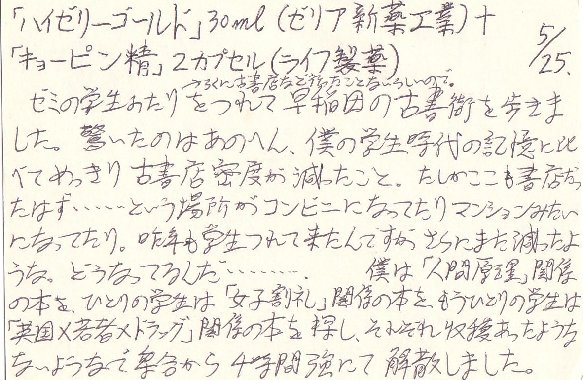 「ハイゼリーゴールド」30ml(ゼリア新薬工業)+
「キョーピン精」2カプセル(ライフ製薬)
5/25.
ろくに古書店など行ったことないらしいので。
ゼミの学生ふたりをつれて早稲田の古書街を歩きま
した。驚いたのはあのへん、僕の学生時代の記憶に比
べてめっきり古書店密度が減ったこと。たしかここも書店だっ
たはず……という場所がコンビニになってたりマンションみたい
になってたり。昨年も学生つれて来たんですが、さらにまた減ったよ
うな。どうなってるんだ………. 僕は「人間原理」関係
の本を、ひとりの学生は「女子割礼」関係の本を、もうひとりの学生は
「英国×若者×ドラッグ」関係の本を探し、それぞれ収穫あったような
ないようなで集合から4時間強にて解散しました。